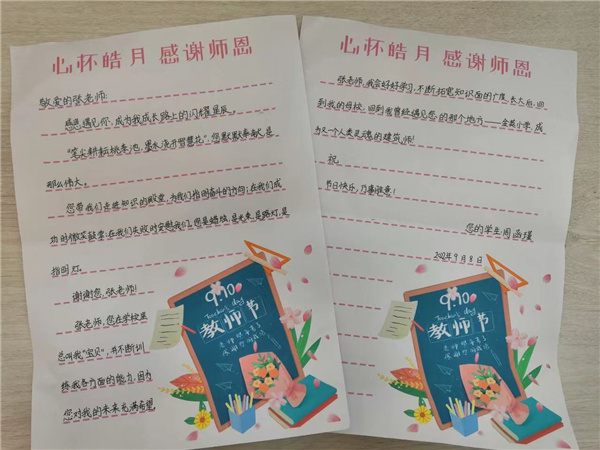 心怀皓月 感谢师恩
敬爱的张老师:
感恩遇见你,成为我成长路上的闪耀星辰。
“笔尖耕耘桃李池,墨水浇开智慧花”,您默默奉献是
那么伟大。
您带我们走进知识的殿堂,为我们指明奋斗的方向;在我们成
功时微笑鼓掌;在我们失败时安慰我们。您是蜡烛,是火柴,是路灯,是
指明灯。
谢谢您,张老师!
张老师,您在学校里
总叫我“宝贝”,并不断训
练我各方面的能力,因为
您对我的未来充满希望。
9.10
Teacher's day
教师节
心怀皓月 感谢师恩
张老师,我会好好学习,不断拓宽知识面的广度,长大后,回
到我的母校,回到我曾经遇见您的那个地方——金英小学,成
为又一个人类灵魂的建筑师!
祝
节日快乐,万事胜意!
您的学生周函瑾
2022年9月8日
9.10
Teacher's day
教师节